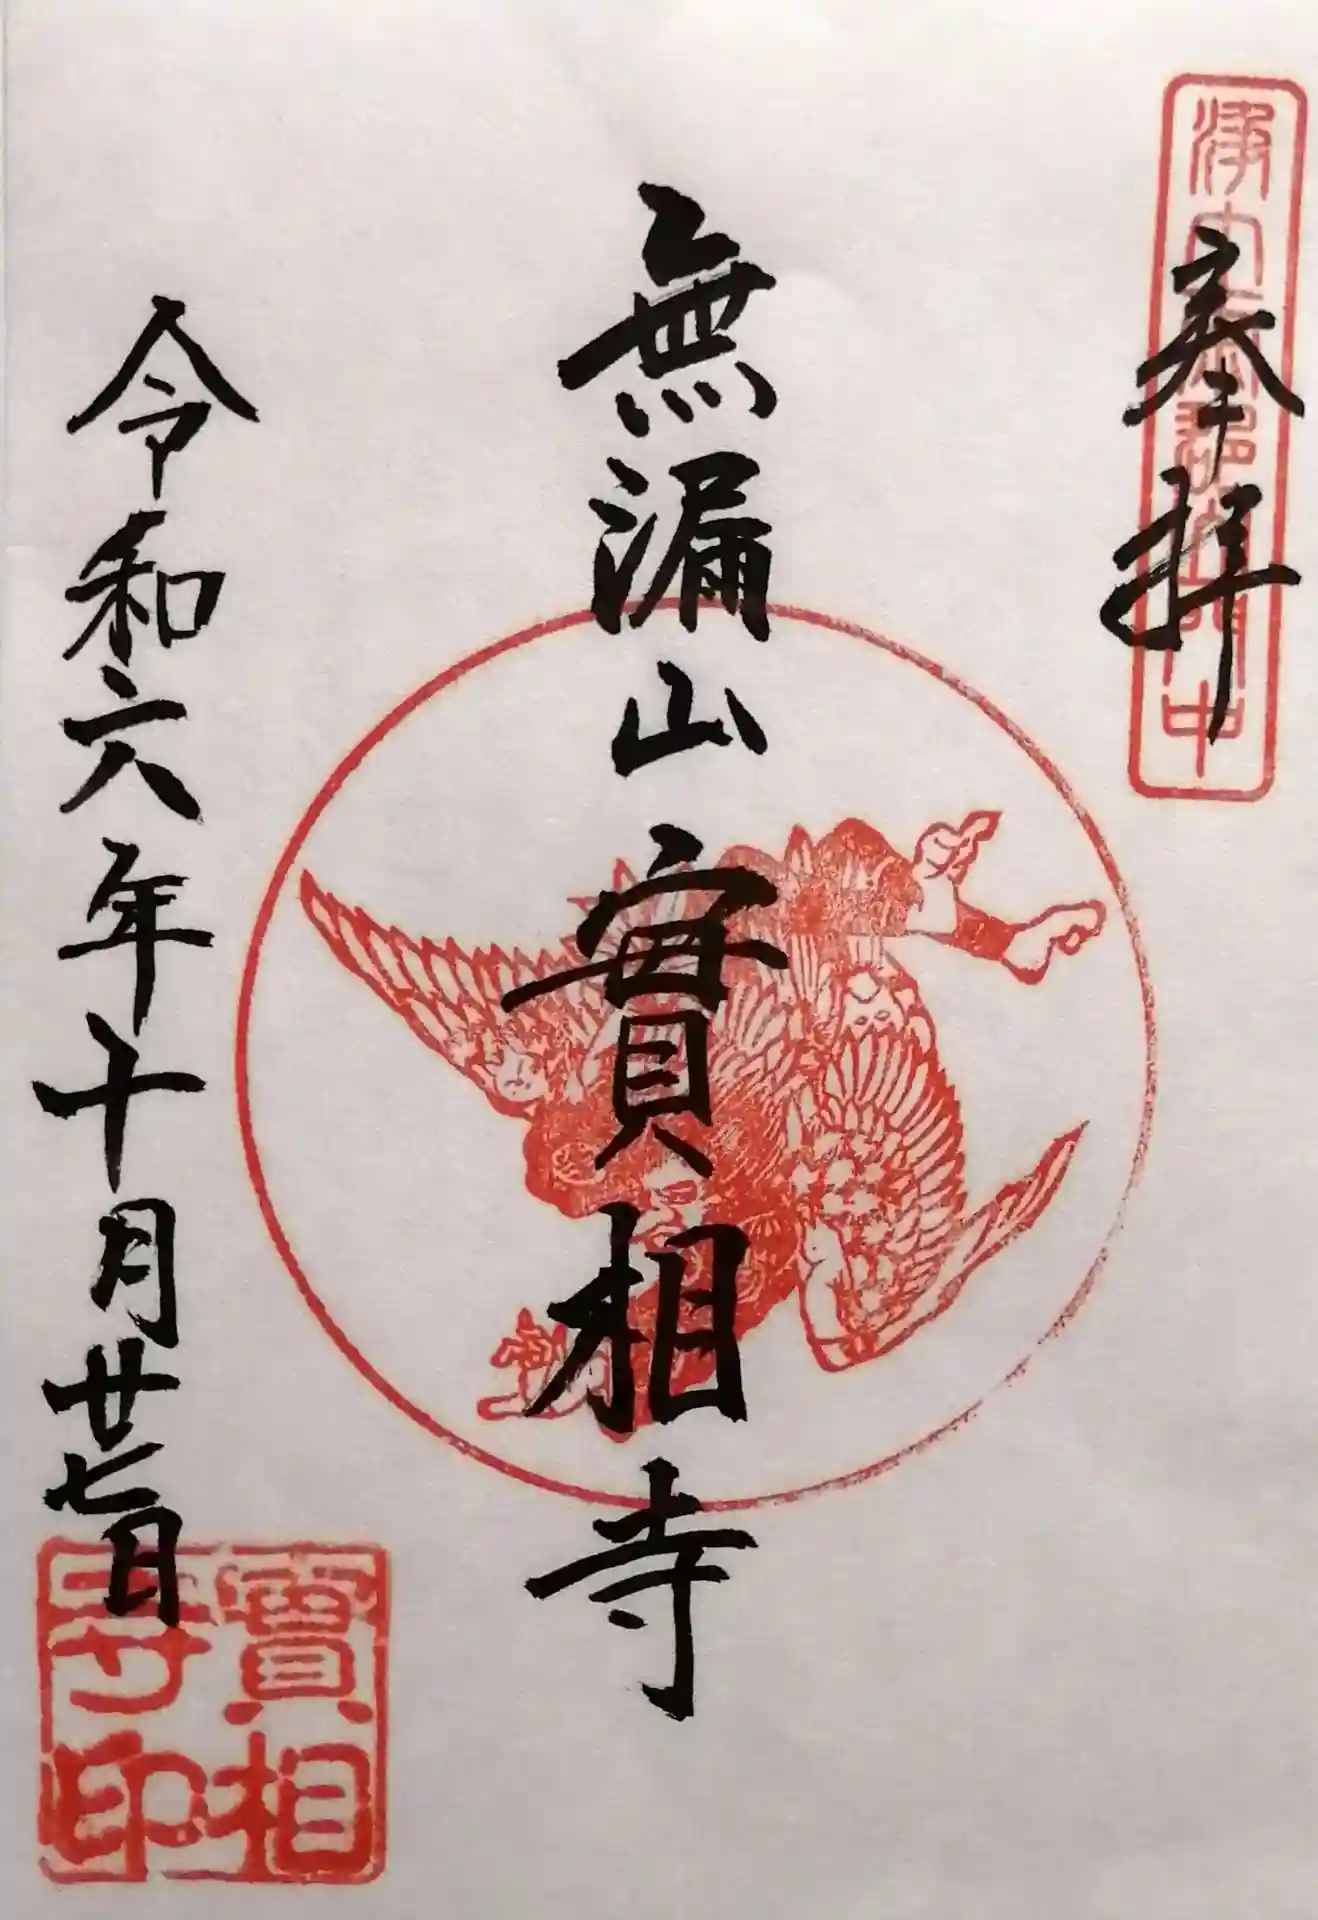 奉拝
無漏山實相寺
令和六年十月廿七日
實相
寺印